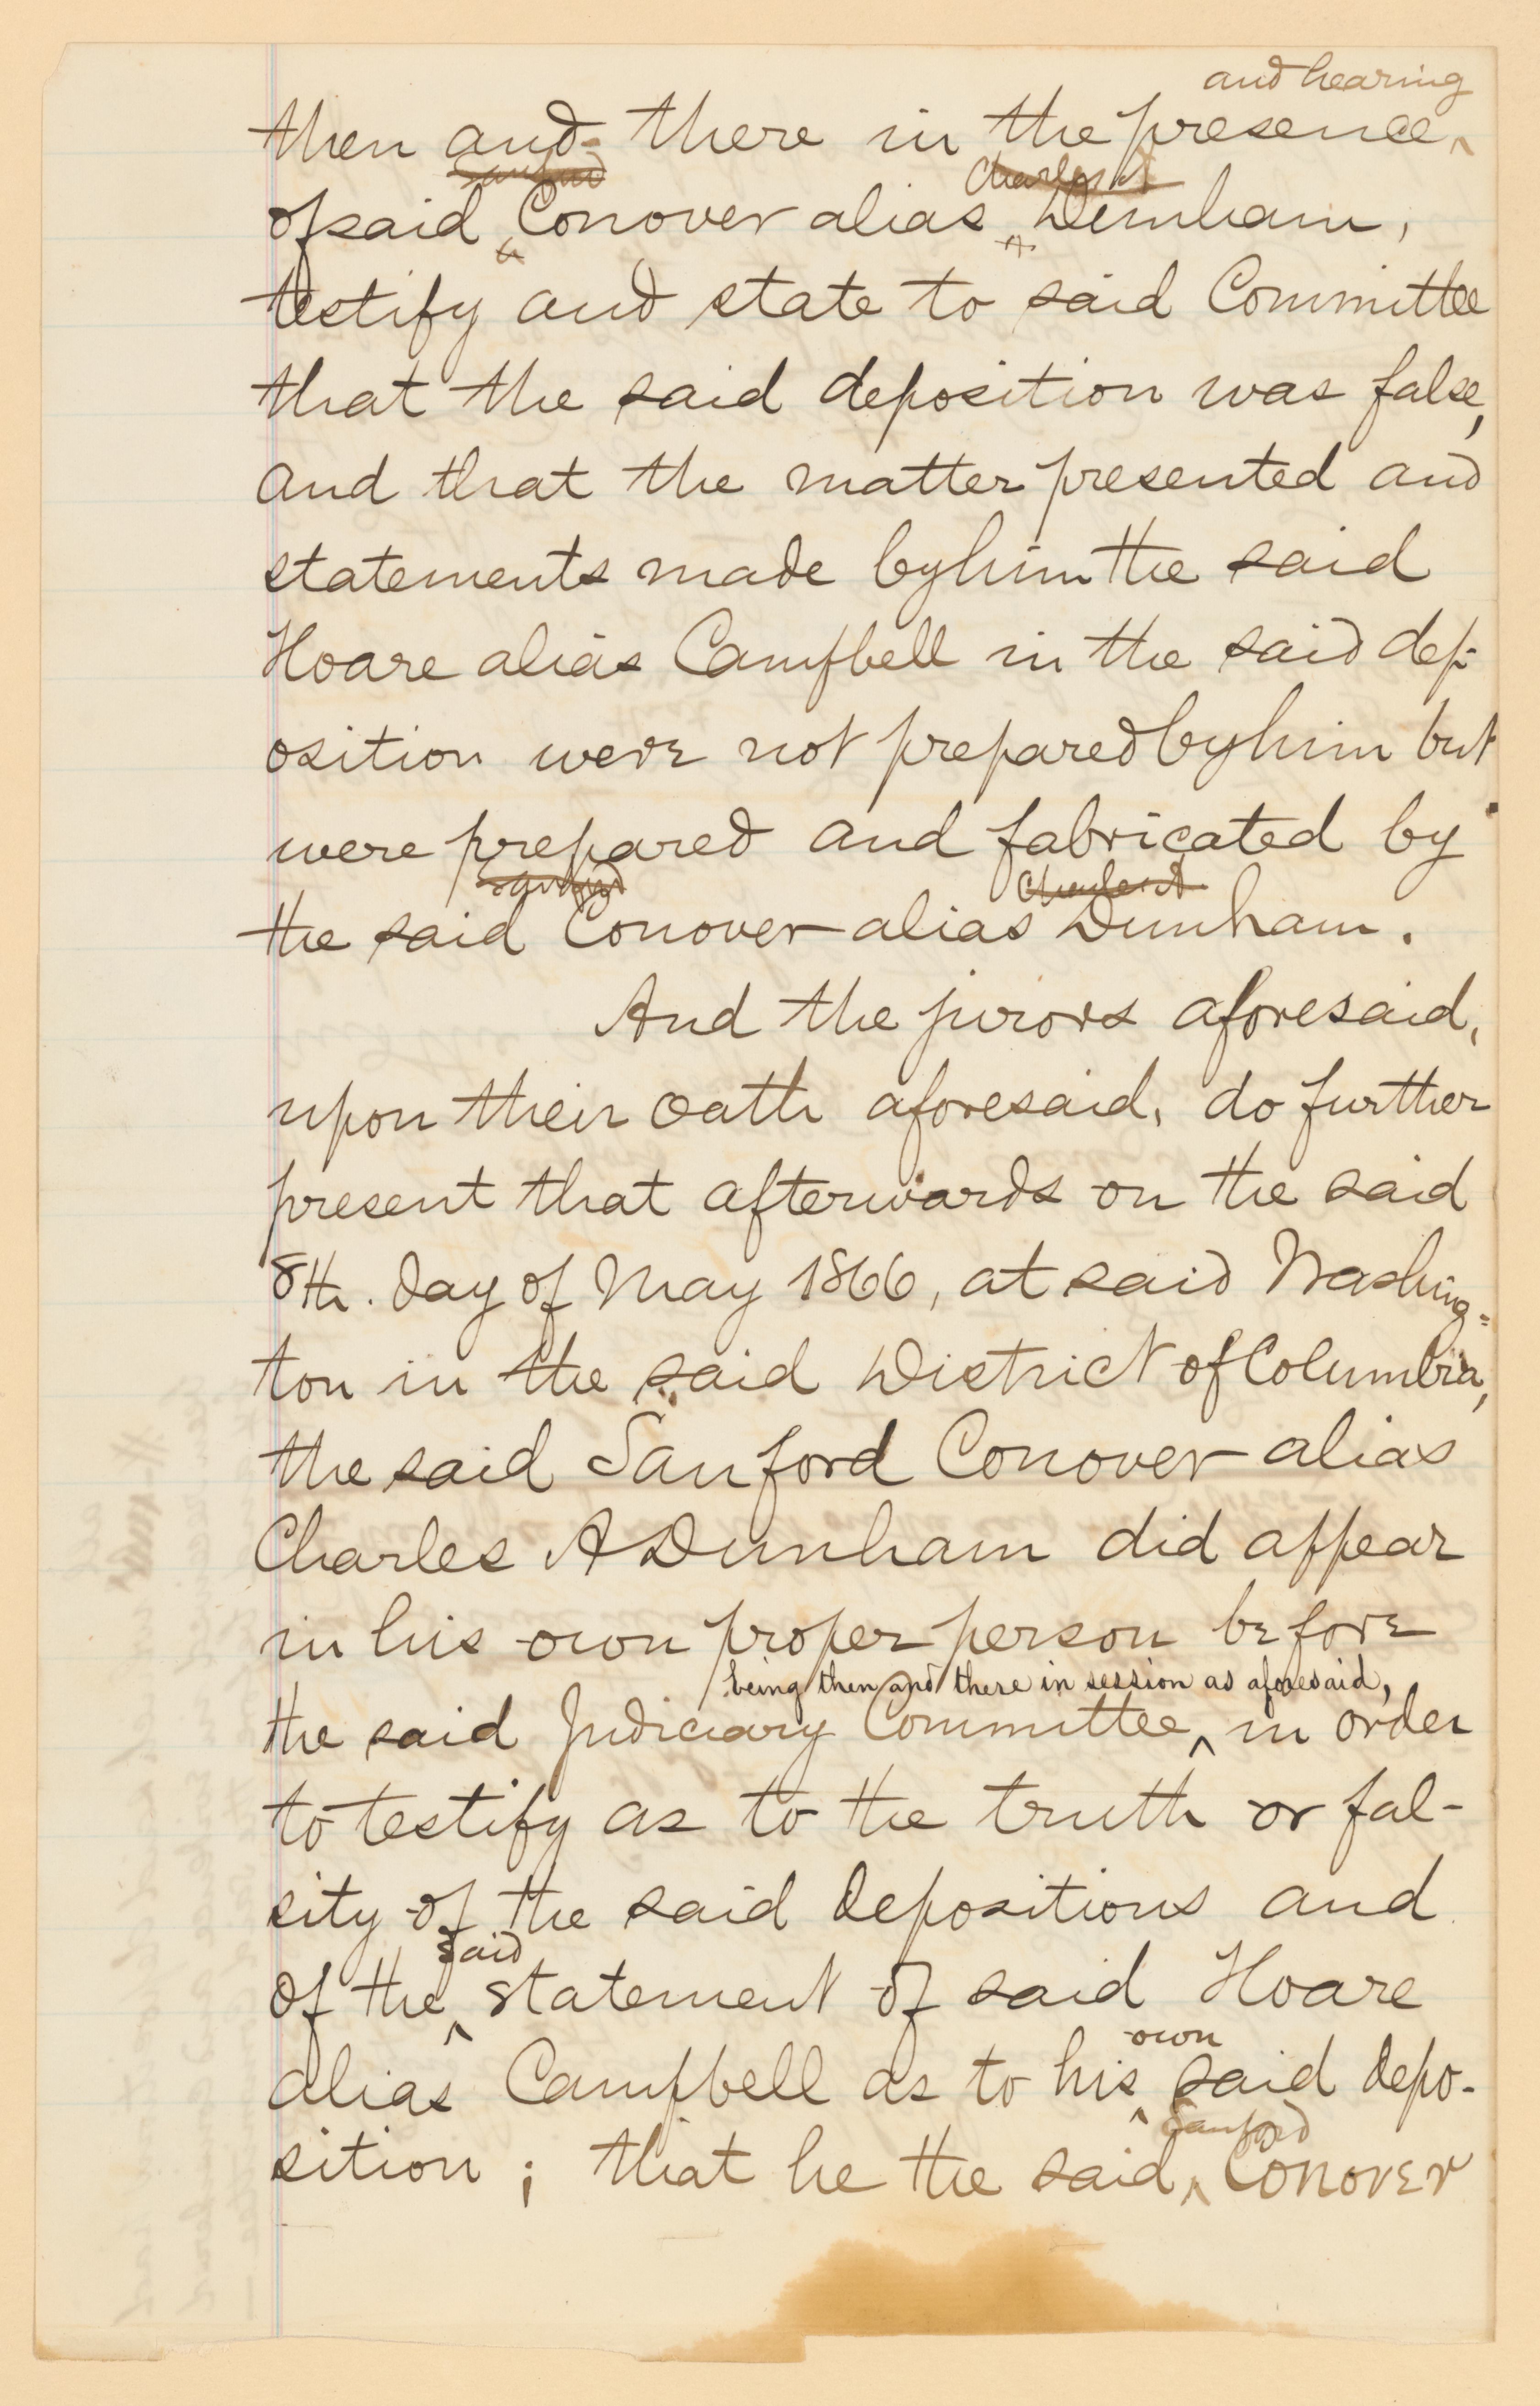 and hearing
then and there in the presence ^
Sanford Charles A
of said ^ Conover alias ^ Dunham,
testify and state to said Committee
that the said deposition was false,
and that the matter presented and
statements made by him the said
Hoare alias Campbell in the said dep-
osition were not prepared by him but
were prepared and fabricated by
Sanford Charles A
the said Conover alias Dunham.
And the jurors aforesaid,
upon their oath aforesaid, do further
present that afterwards on the said
8th. day of May 1866, at said Washing=
ton in the said District of Columbia,
the said Sanford Conover alias
Charles A Dunham did appear
in his own proper person before
being then and there in session as aforesaid,
the said Judiciary Committee, ^ in order
to testify as to the truth or fal-
sity of the said depositions and
said
of the ^ statement of said Hoare
own
alias Campbell as to his ^ said depo-
Sanford
sition ; that he the said ^ Conover